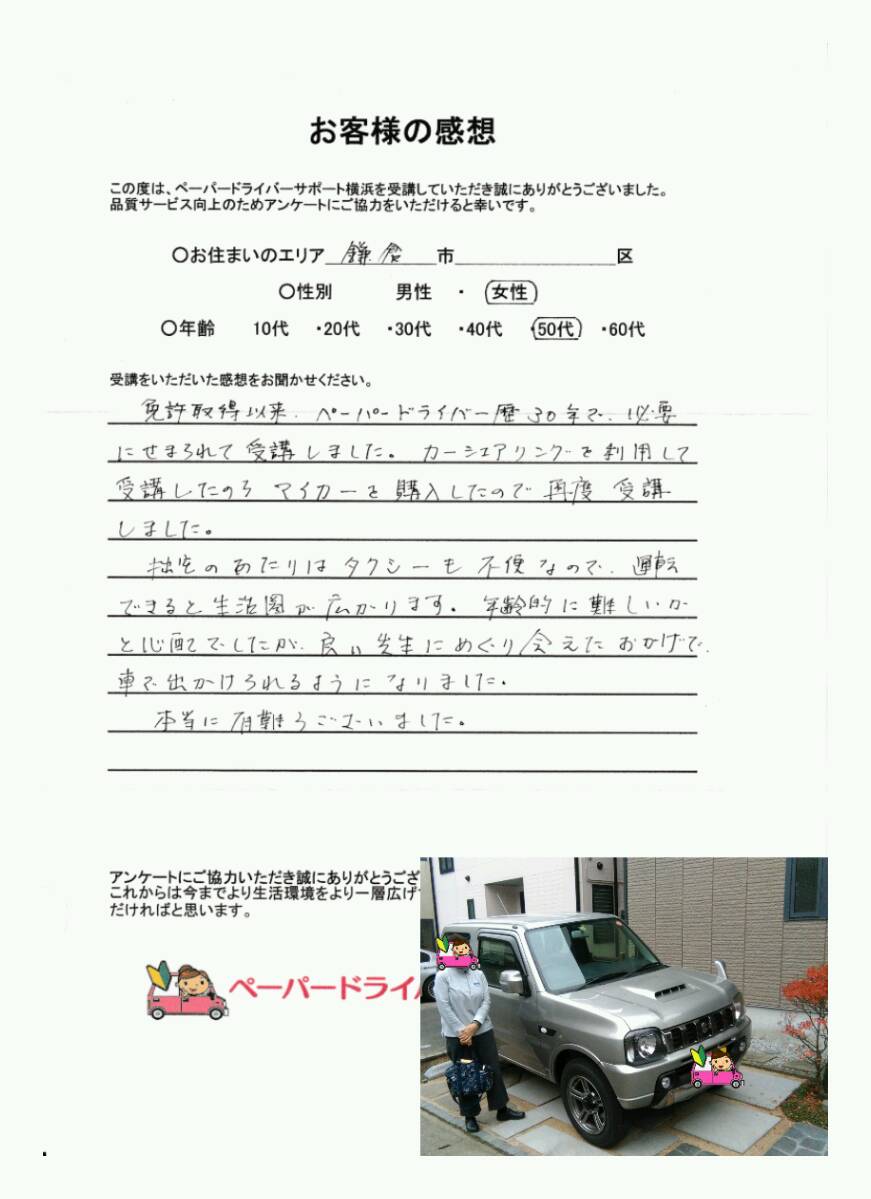 お客様の感想
この度は、ペーパードライバーサポート横浜を受講していただき誠にありがとうございました。
品質サービス向上のためアンケートにご協力をいただけると幸いです。
〇お住まいのエリア 鎌倉 市 区
〇性別 男性 ・ 女性
〇年齢 10代 ・20代 ・30代 ・40代 ・50代 ・60代
受講をいただいた感想をお聞かせください。
免許取得以来、ペーパードライバー歴30年で、必要
にせまられて受講しました。カーシェアリングを利用して
受講したのち マイカーを購入したので再度 受講
しました。
拙宅のあたりはタクシーも不便なので、運転
できると生活圏が広がります。年齢的に難しいか
と心配でしたが、良い先生にめぐり会えたおかげで、
車で出かけられるようになりました。
本当に有難うございました。
アンケートにご協力いただき誠にありがとうござ
これからは今までより生活環境をより一層広げ
だければと思います。
ペーパードライ